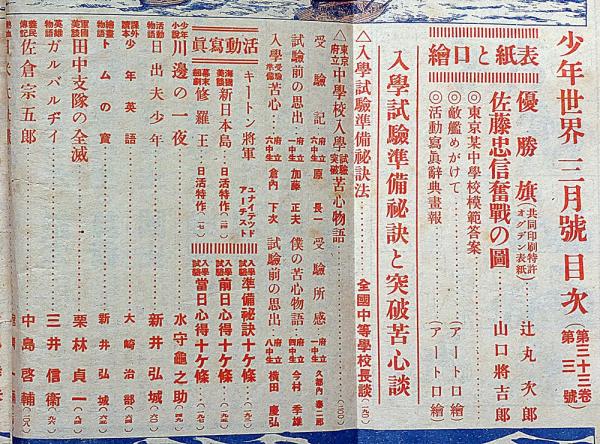 少年世界 三月號 目次 (第三十三卷 第三號)
表紙と口繪
優勝旗 (共同印刷特許 オグデン表紙) 辻丸次郎
佐藤忠信奮戰の圖 山口將吉郎
◎東京某中學校模範答案
◎敵艦めがけて (アート口繪)
◎活動寫眞辭典畫報 (アート口繪)
入學試驗準備祕訣と突破苦心談
△入學試驗準備祕訣法 全國中等學校長談
△東京府立中學校入學試驗突破苦心物語
受驗記 府立六中生 原長一
受驗所感 府立一中生
試驗前の思出 府立一中生 加藤正夫
僕の苦心物語 府立四中生 今村季雄
入學受驗準備苦心 府立六中生 倉内下次
試驗前の思出 府立八中生 横田慶弘
活動寫眞
キートン將軍 ユナイテッドアーチスト
海國美談 新日本島 日活特作
幕末超劇 修羅王 日活特作
入學試驗 準備祕訣十ケ條
入學試驗 前日心得十ケ條
入學試驗 當日心得十ケ條
少年小說 川邊の一夜 水守龜之助
活動物語 日出夫少年 新井弘城
課外讀本 少年英語 大崎治部
繪畫物語 トムの寶 新井弘城
軍國美談 田中支隊の全滅 栗林貞一
英雄物語 ガルバルヂイ 三井信衞
義民傳記 佐倉宗五郎 中島啓輔